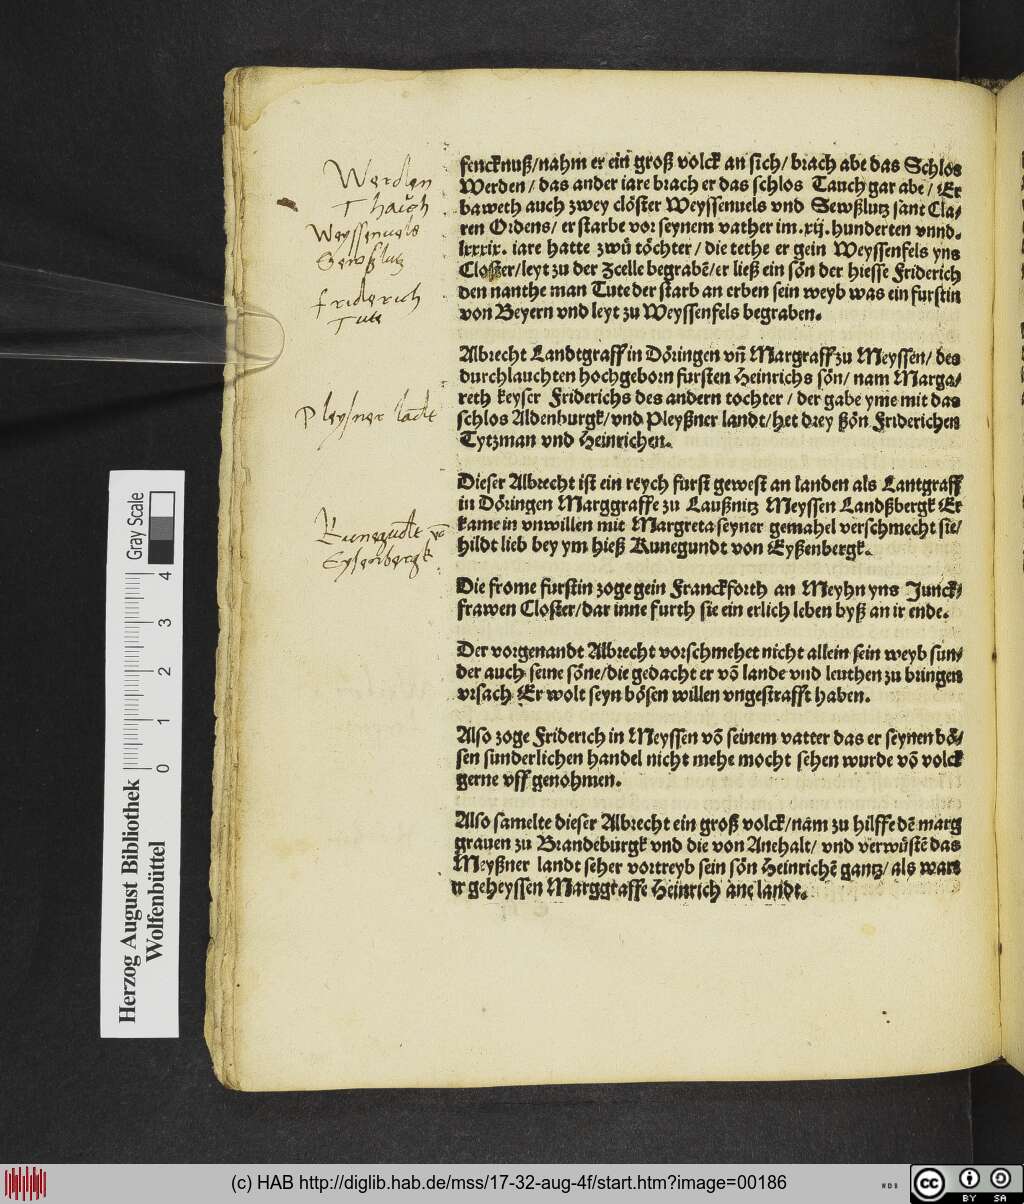 fencknuß/nahm er ein groß volck an sich/ brach abe das Schlos
Werden/ das ander iare brach er das schlos Tauch gar abe/ Er
baweth auch zwey clöster Weyssenuels vnd Sewßlutz sant Cla/
ren Ordens/ er starbe vor seynem vather im.xij.hunderten vnnd.
lxxxix. iare hatte zwů töchter/ die tethe er gein Weyssenfels yns
Closter/leyt zu der Zcelle begrabē/er ließ ein sōn der hiesse Friderich
den nanthe man Tute der starb an erben sein weyb was ein furstin
von Beyern vnd leyt zu Weyssenfels begraben.
Albrecht Landtgraff in Döringen vn̄ Margraff zu Meyssen/ des
durchlauchten hochgeborn fursten Heinrichs sōn/ nam Marga/
reth keyser Friderichs des andern tochter/ der gabe yme mit das
schlos Aldenburgk/vnd Pleyßner landt/het drey ßōn Friderichen
Tytzman vnd Heinrichen.
Dieser Albrecht ist ein reych furst gewest an landen als Lantgraff
in Döringen Marggraffe zu Laußnitz Meyssen Landßbergk Er
kame in vnwillen mit Margreta seyner gemahel verschmecht sie/
hildt lieb bey ym hieß Kunegundt von Eyßenbergk.
Die frome furstin zoge gein Franckforth an Meyhn yns Junck/
frawen Closter/dar inne furth sie ein erlich leben byß an ir ende.
Der vorgenandt Albrecht vorschmehet nicht allein sein weyb sun/
der auch seine sōne/die gedacht er vō lande vnd leuthen zu bringen
vrsach Er wolt seyn bösen willen vngestrafft haben.
Also zoge Friderich in Meyssen vō seinem vatter das er seynen bö/
sen sunderlichen handel nicht mehe mocht sehen wurde vō volck
gerne vff genohmen.
Also samelte dieser Albrecht ein groß volck/nam zu hilffe dē marg
grauen zu Brandeburgk vnd die von Anehalt/ vnd verwüstē das
Meyßner landt seher vortreyb sein sōn Heinrichē gantz/ als wart
er geheyssen Marggraffe Heinrich āne landt.
Werden
Thaůch
Weyssenuels
Sewßlutz
friderich
Tute
Pleysner lādt
Kunegudt vō
Eysenbergk
Herzog August Bibliothek
Wolfenbüttel
Gray Scale
0 1 2 3 4
(c) HAB http://diglib.hab.de/mss/17-32-aug-4f/start.htm?image=00186
WDB
cc BY SA